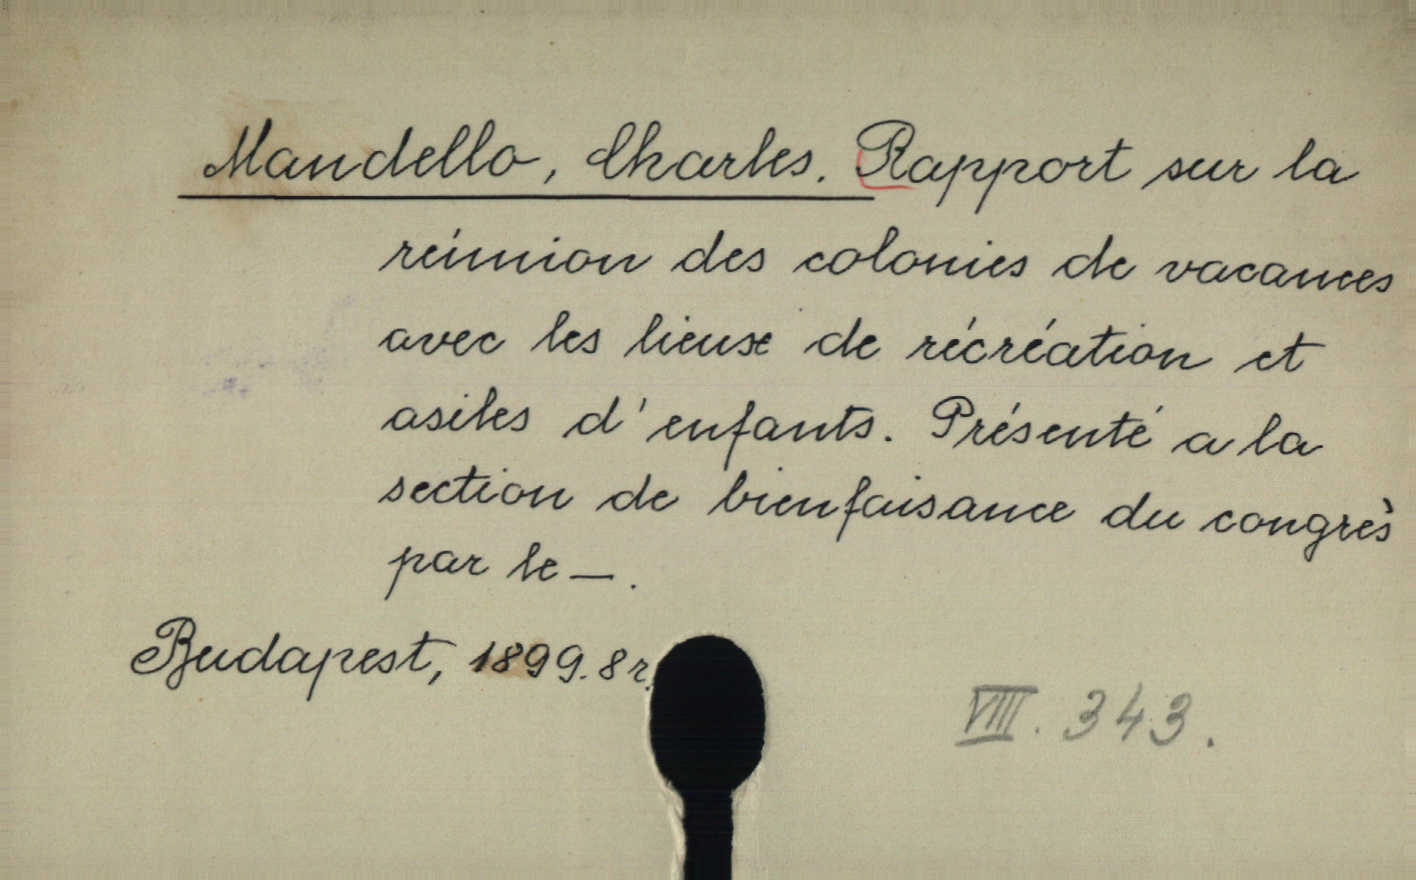 Mandello, Charles. Rapport sur la
réunion des colonies de vacances
avec les lieux de récréation et
asiles d'enfants. Présenté a la
section de bienfaisance du congrès
par le —.
Budapest, 1899. 8r.
VIII. 343.